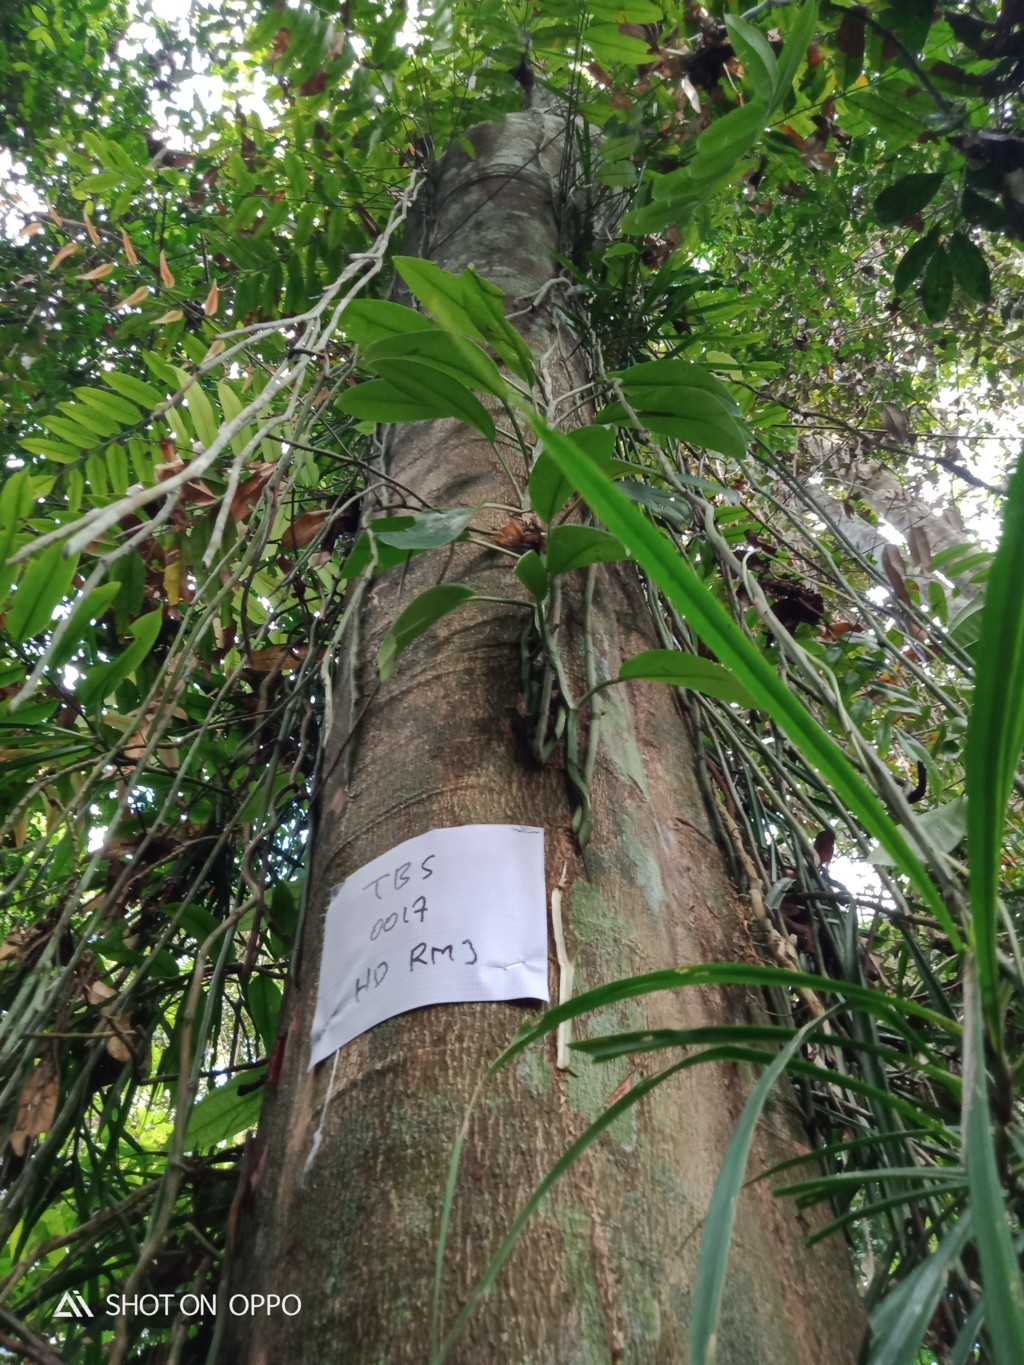 TBS
0017
HD RM3
SHOT ON OPPO